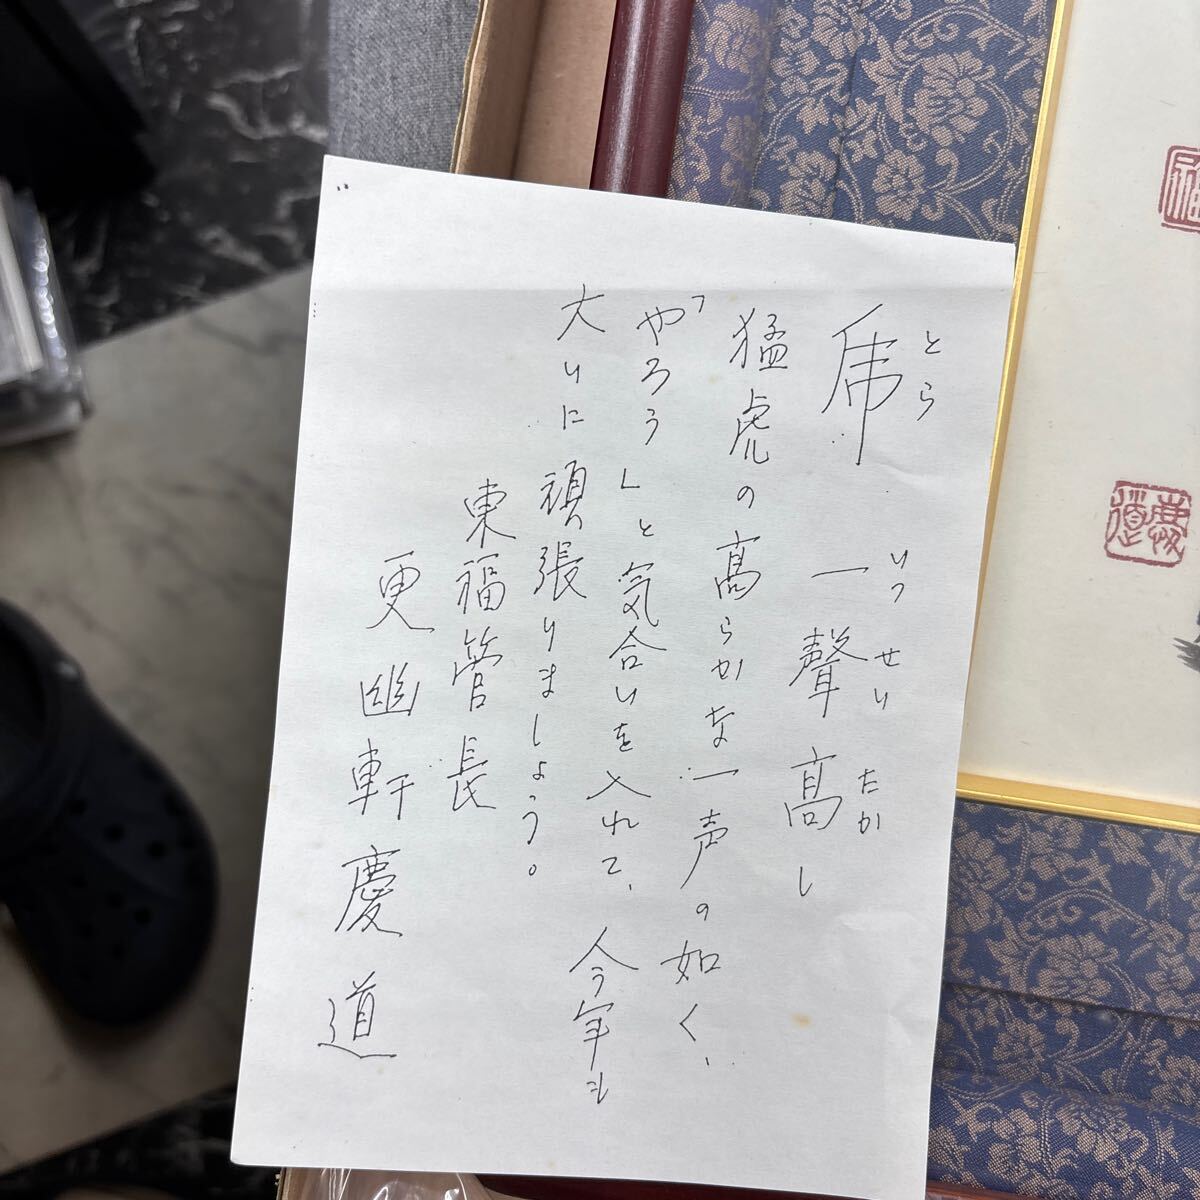 とら　いっせいたか
虎　一聲髙し
猛虎の髙らかな一声の如く、
「やろう」と気合いを入れて、今年も
大いに頑張りましょう。
東福管長
更幽軒慶道
慶道